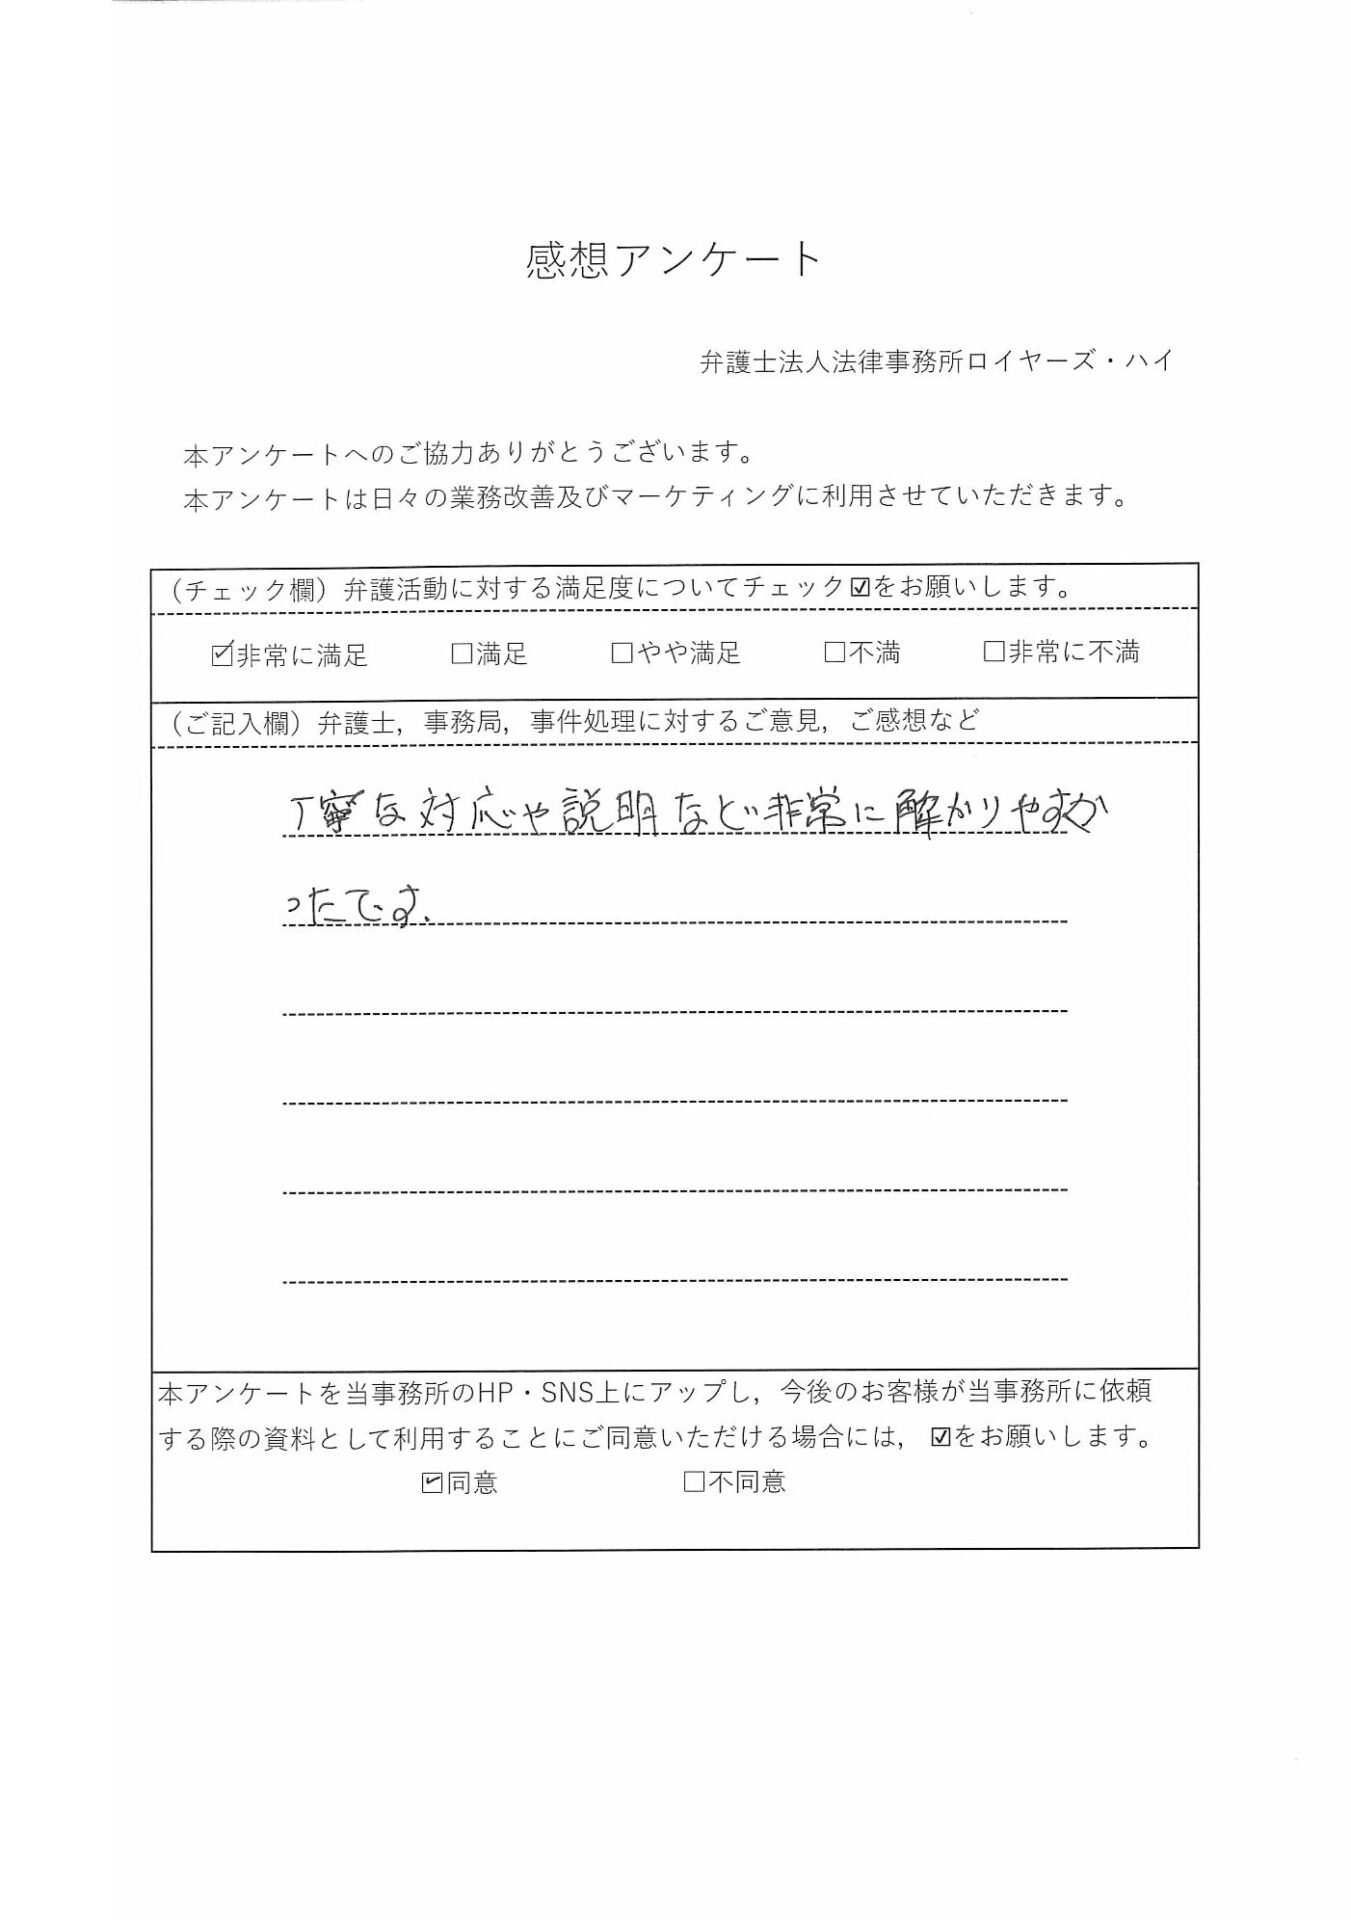 感想アンケート
弁護士法人法律事務所ロイヤーズ・ハイ
本アンケートへのご協力ありがとうございます。
本アンケートは日々の業務改善及びマーケティングに利用させていただきます。
（チェック欄）弁護活動に対する満足度についてチェック☑をお願いします。
☑非常に満足 □満足 □やや満足 □不満 □非常に不満
（ご記入欄）弁護士，事務局，事件処理に対するご意見，ご感想など
丁寧な対応や説明など非常に解かりやすか
ったです。
本アンケートを当事務所のHP・SNS上にアップし，今後のお客様が当事務所に依頼
する際の資料として利用することにご同意いただける場合には，☑をお願いします。
☑同意 □不同意